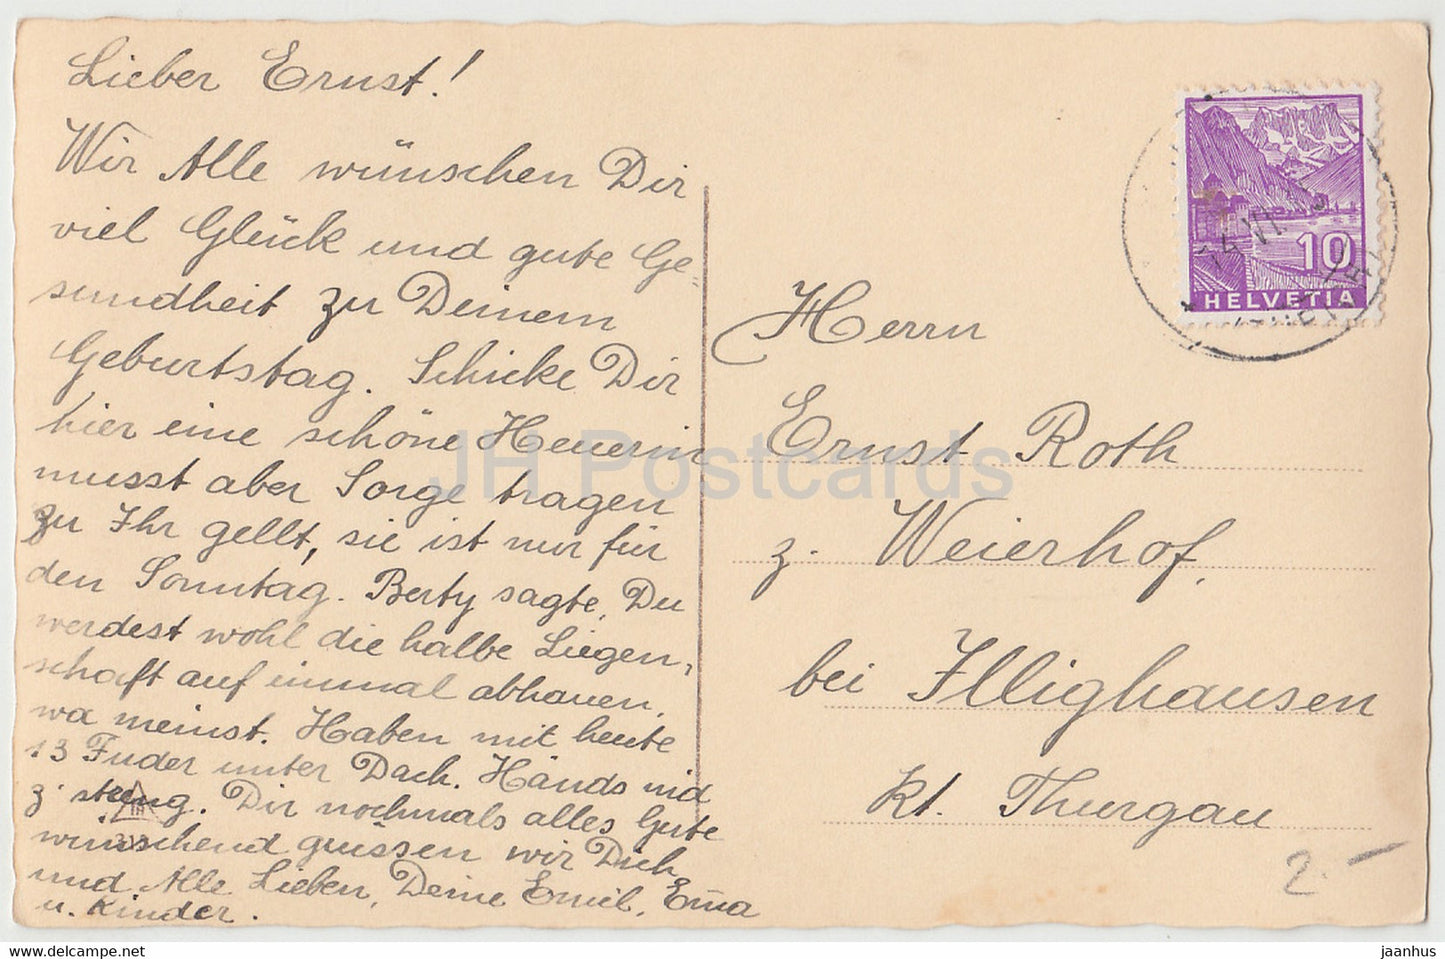 Lieber Ernst!
Wir Alle wünschen Dir
viel Glück und gute Ge-
sundheit zu Deinem
Geburtstag. Schicke Dir
hier eine schöne Heuerin
musst aber Sorge tragen
zu Ihr gellt, sie ist nur für
den Sonntag. Berty sagte, Du
werdest wohl die halbe Liegen-
schaft auf einmal abhauen,
wa meinst. Haben mit heute
13 Fuder unter Dach. Händs nid
z' streng. Dir nochmals alles Gute
wünschend grüssen wir Dich
und Alle Lieben, Deine Emil, Ema
u. Kinder.
HELVETIA
10
14 VI
Herrn
Ernst Roth
z. Weierhof,
bei Illighausen
Kt. Thurgau
2.-
JH Postcards
hippostcard.com/store/jaanhus-aime
jaanhus.com